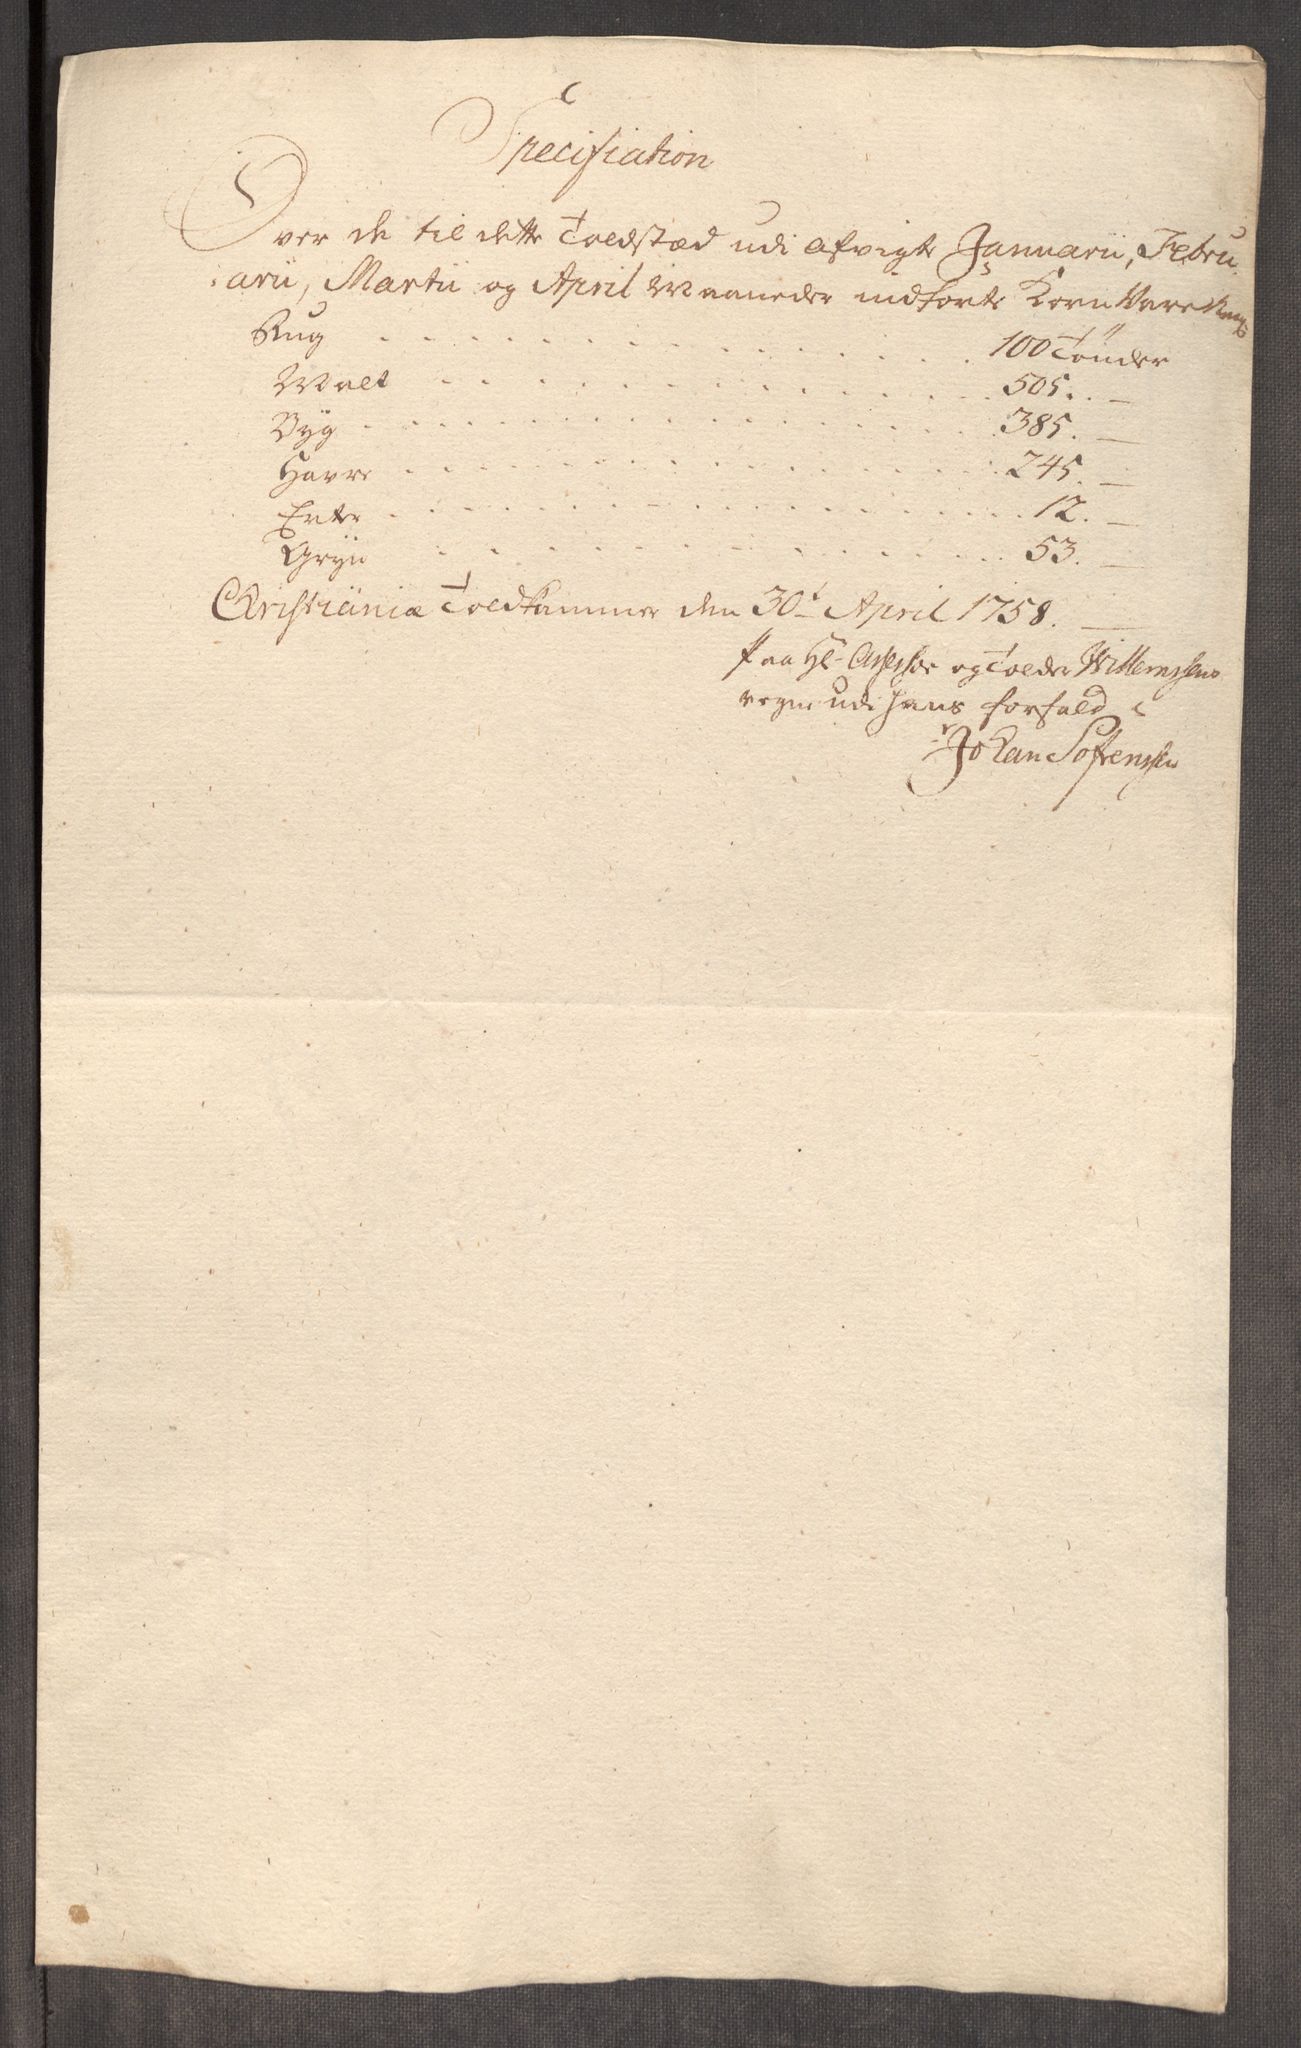 Specification
Over de til dette Toldstæd udi afvigte Januarii, Febru
arii, Martii og April Maaneder indførte Korn Vare
Rug 100 Tönder
Malt 505. —
Byg 385. —
Havre 245. —
Erter 12. —
Gryn 53. —
Christiania Toldkammer den 30t April 1758. —
Paa Hr Assessor og Tolder Willemsens
vegne udi hans forfald
Johan Sofrenssen